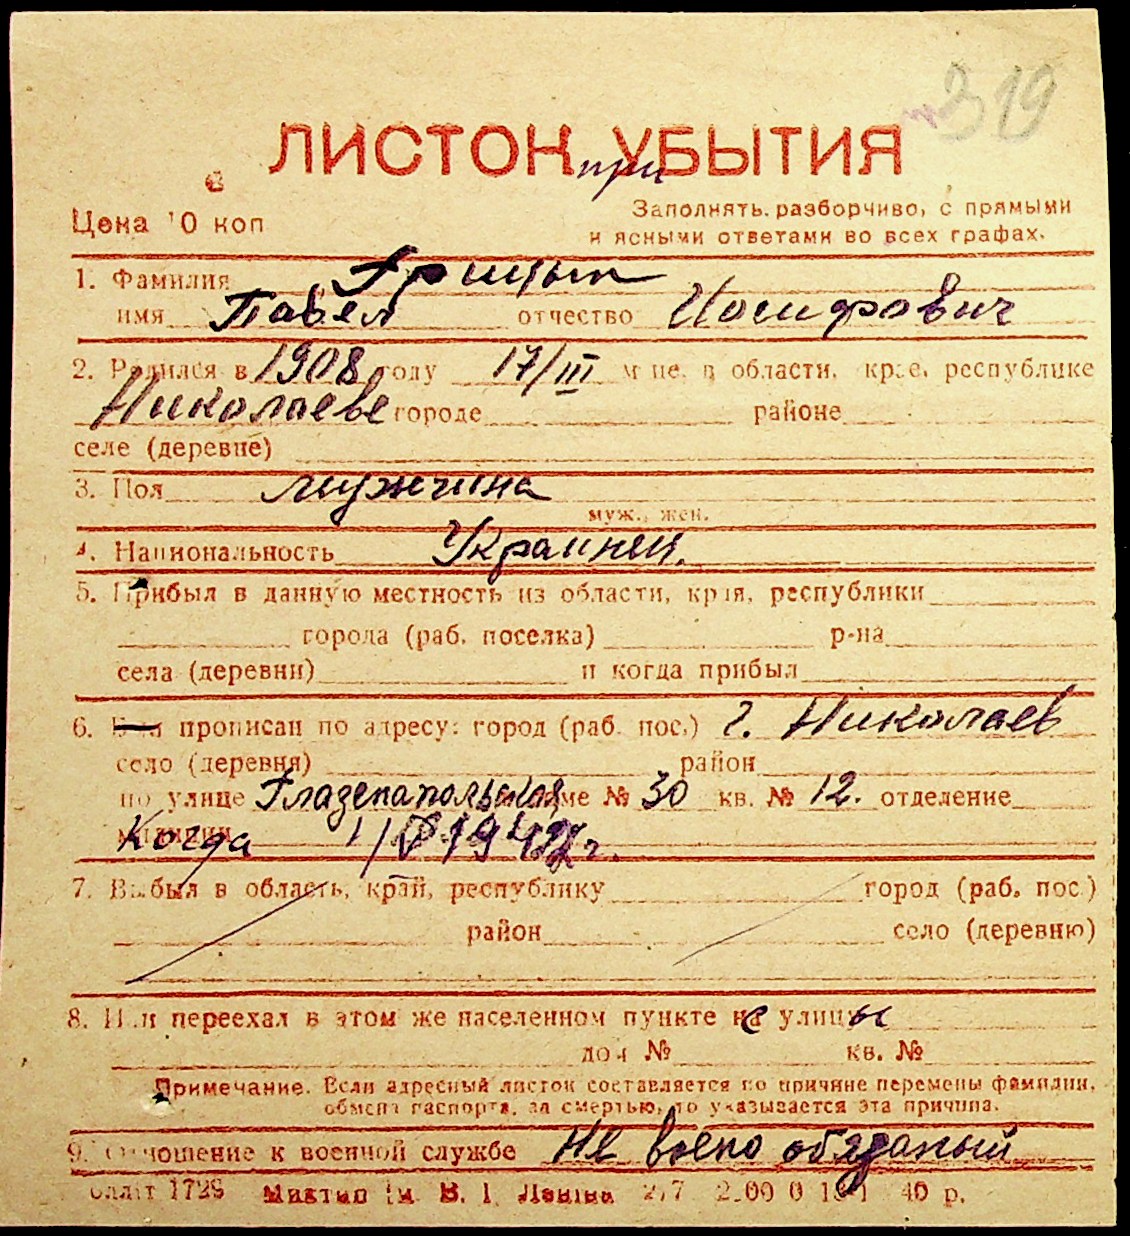 319
ЛИСТОК УБЫТИЯ
при
Цена 10 коп
Заполнять разборчиво, с прямыми
и ясными ответами во всех графах.
1. Фамилия Грицык
имя Павел отчество Иосифович
2. Родился в 1908 году 17/III м-це, в области, крае, республике
Николаеве городе районе
селе (деревне)
3. Пол мужчина
муж., жен.
4. Национальность Украинец.
5. Прибыл в данную местность из области, края, республики
города (раб. поселка) р-на
села (деревни) и когда прибыл
6. прописан по адресу: город (раб. пос.) г. Николаев
село (деревня) район
по улице Глазенапольская доме № 30 кв. № 12. отделение
милиции Когда
7. Выбыл в область, край, республику город (раб. пос.)
район село (деревню)
8. Или переехал в этом же населенном пункте с улицы
дом № кв. №
Примечание. Если адресный листок составляется по причине перемены фамилии,
обмена паспорта, за смертью, то указывается эта причина.
9. Отношение к военной службе не воено обязаный
1728 В. І. Леніна